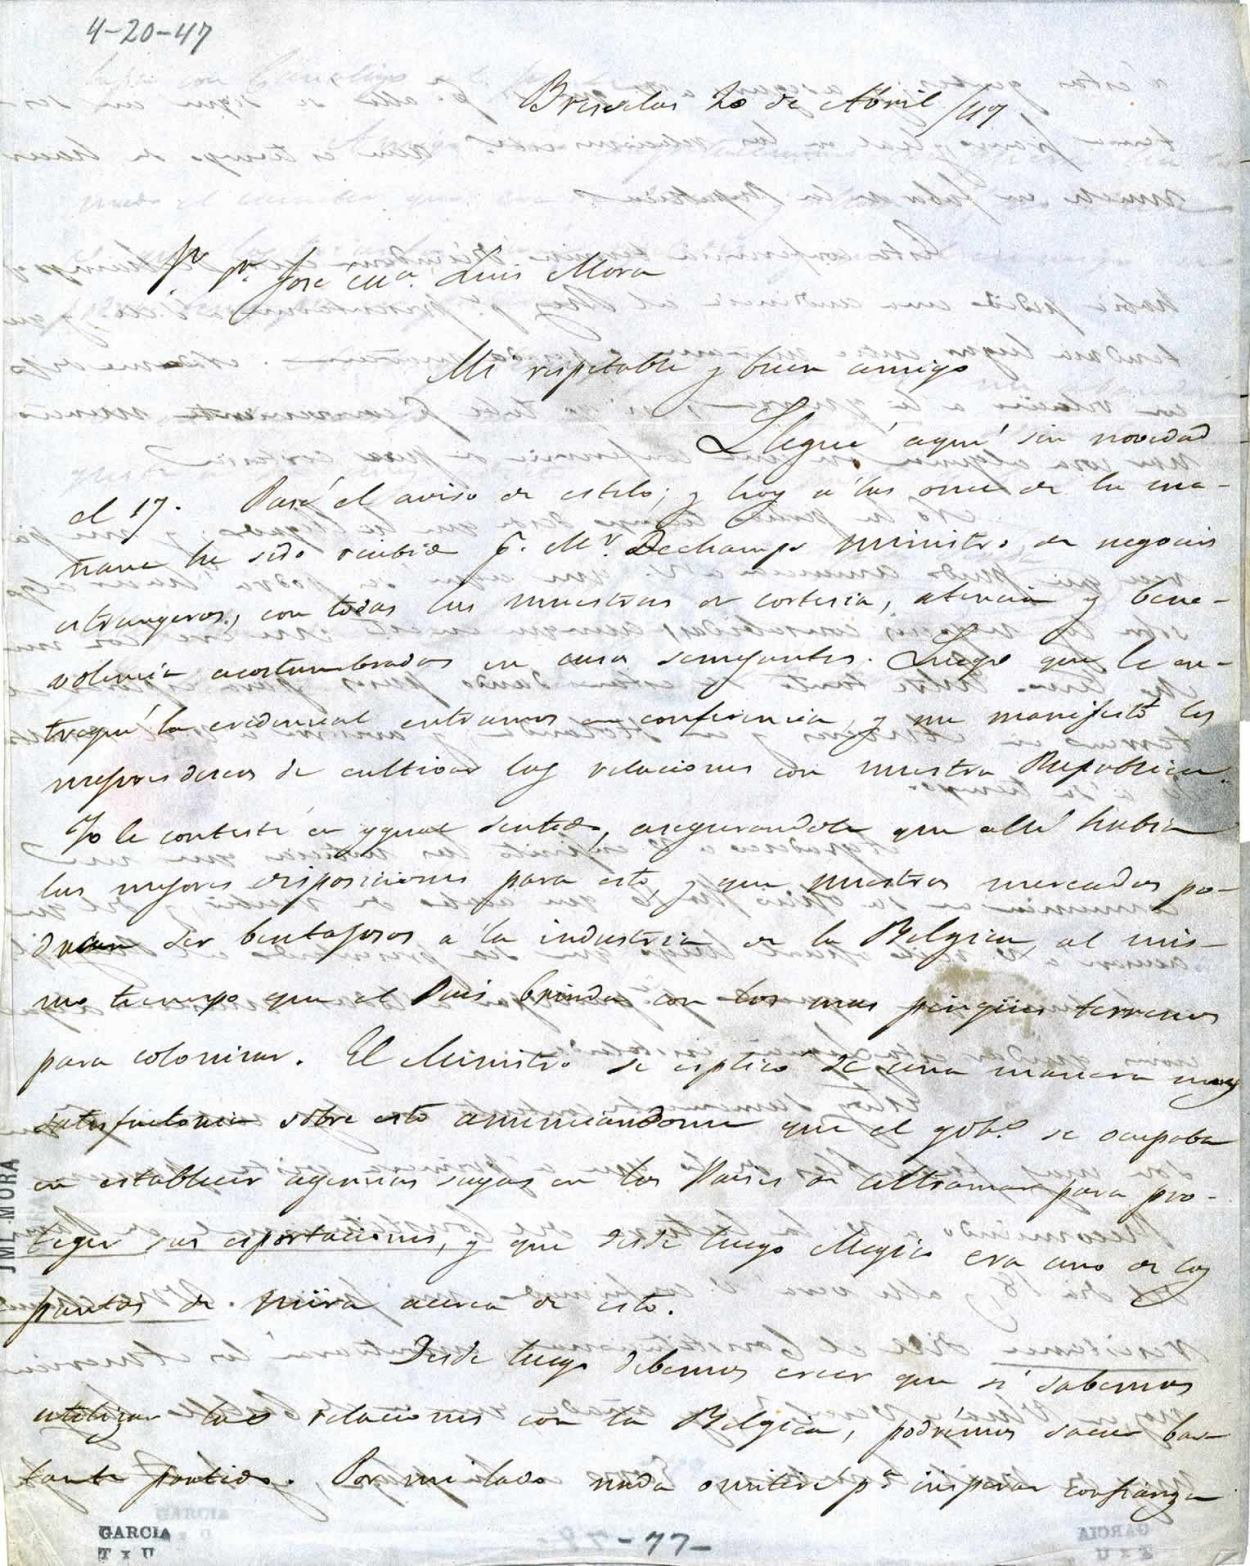 4-20-47
Bruselas 20 de Abril/47
Sr. Dr. José Ma. Luis Mora
Mi respetable y buen amigo
Llegué aquí sin novedad
el 17. Pasé el aviso de estilo; y hoy a las once de la ma-
ñana he sido recibido p. Mr. Dechamps ministro de negocios
estrangeros, con todas las muestras de cortesia, atencion y bene-
volencia acostumbradas en casos semejantes. Luego que le en-
tregué la credencial entramos en conferencia, y me manifestó los
mejores deseos de cultivar las relaciones con nuestra Republica.
Yo le contesté en ygual sentido, asegurandole que allí habia
las mejores disposiciones para esto, y que nuestros mercados po-
drian ser bentajosos a la industria de la Belgica, al mis-
mo tiempo que el Pais brinda con los mas pingües terrenos
para colonizar. El Ministro se esplicó de una manera muy
satisfactoria sobre esto anunciandome que el gobo. se ocupaba
en establecer agencias suyas en los Paises de ultramar para pro-
teger sus esportaciones, y que desde luego Megico era uno de los
puntos de mira acerca de esto.
Desde luego debemos creer que si sabemos
utilizar las relaciones con la Belgica, podrémos sacar bas-
tante partido. Por mi lado nada omitiré pa. inspirar confianza
JML MORA
GARCIA
-77-